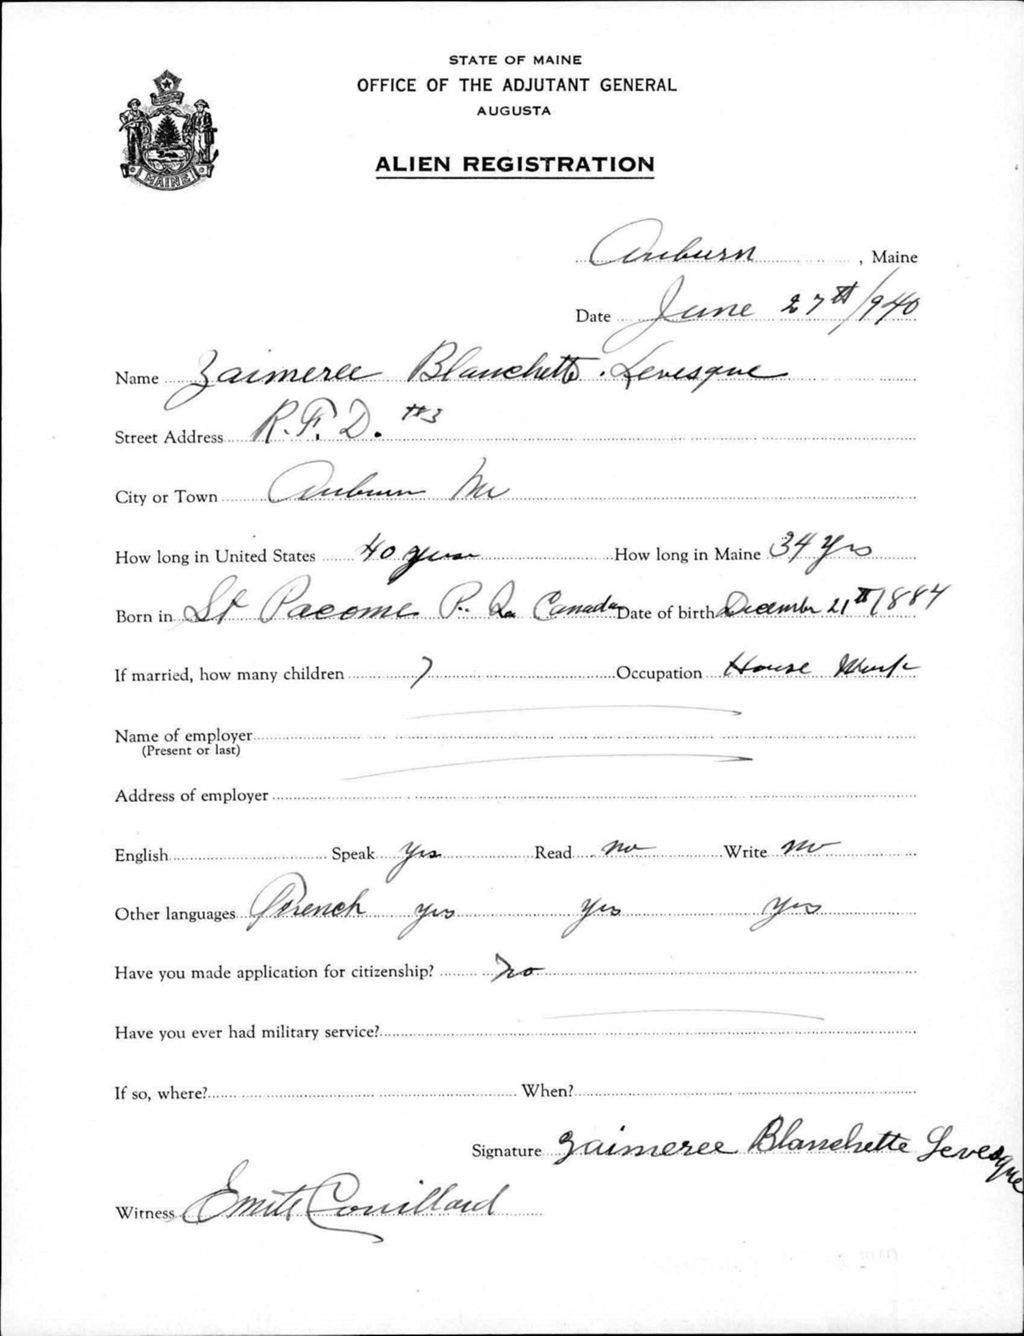 STATE OF MAINE
OFFICE OF THE ADJUTANT GENERAL
AUGUSTA
ALIEN REGISTRATION
MAINE
Auburn, Maine
Date June 27th/940
Name Zaimeree Blanchette Levesque
Street Address R.F.D. #3
City or Town Auburn Me
How long in United States 40 years How long in Maine 34 yrs
Born in St Pacome P. Q. Canada Date of birth December 21th/1884
If married, how many children 7 Occupation House Work
Name of employer
(Present or last)
Address of employer
English Speak yes Read no Write no
Other languages French yes yes yes
Have you made application for citizenship? no
Have you ever had military service?
If so, where? When?
Signature Zaimeree Blanchette Levesque
Witness Emile Couillard